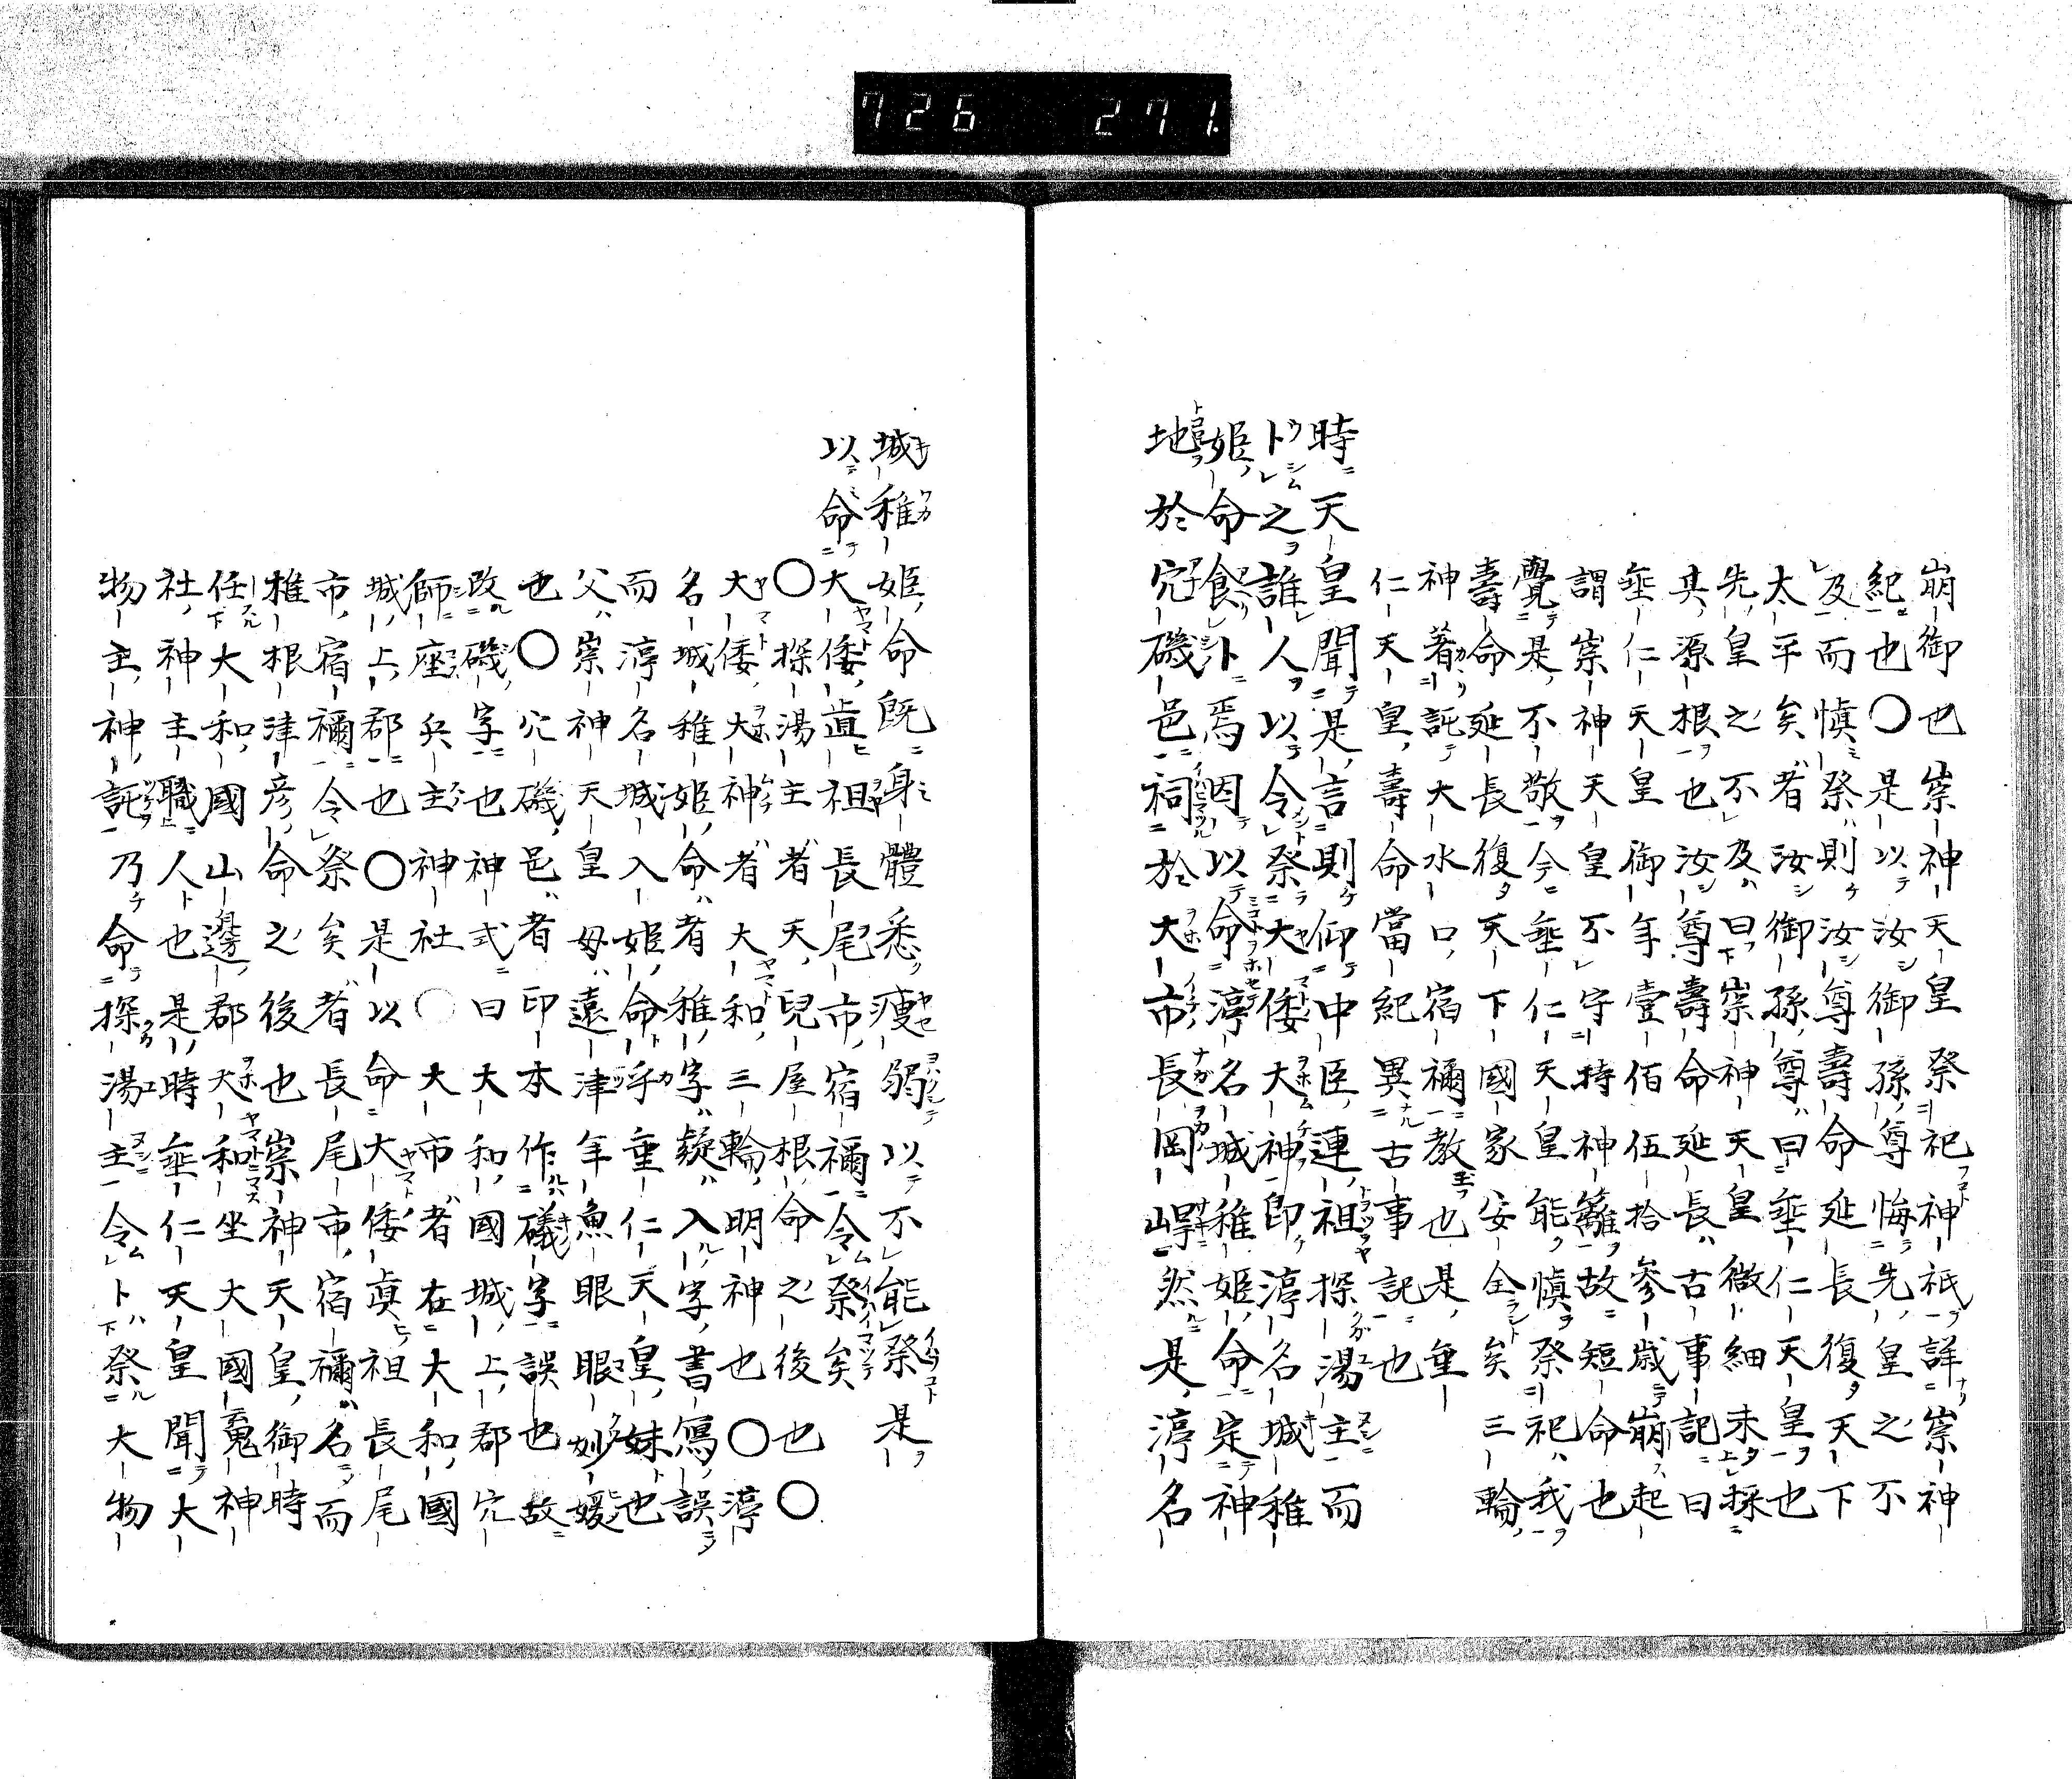 726 271.
崩御也崇神天皇祭祀神祇詳崇神
紀也〇是以汝御孫尊悔先皇之不
及而愼祭則汝尊壽命延長復天下
太平矣者汝御孫尊曰垂仁天皇也
先皇之不及曰崇神天皇微細未探
其源根也汝尊壽命延長古事記曰
垂仁天皇御年壹佰伍拾參歳崩起
謂崇神天皇不守持神籬故短命也
覺是不敬今垂仁天皇能愼祭祀我
壽命延長復天下國家安全矣三輪
神著託大水口宿禰教也是垂
仁天皇壽命當紀異古事記也
時天皇聞是言則仰中臣連祖探湯主而
卜之誰人以令祭大倭大神即渟名城稚
姫命食卜焉因以命渟名城稚姫命定神
地於穴磯邑祠於大市長岡岬然是渟名
城稚姫命既身體悉瘦弱以不能祭是
以命大倭直祖長尾市宿禰令祭矣
〇探湯主者天兒屋根命之後也〇
大倭大神者大和三輪明神也〇渟
名城稚姫命者稚字疑入字書寫誤
而渟名城入姫命乎垂仁天皇妹也
父崇神天皇母遠津年魚眼眼妙媛
也〇穴磯邑者印本作礒字誤也故
改磯字也神式曰大和國城上郡穴
師座兵主神社〇大市者在大和國
城上郡也〇是以命大倭眞祖長尾
市宿禰令祭矣者長尾市宿禰名而
椎根津彦命之後也崇神天皇御時
任大和國山邊郡大和坐大國䰟神
社神主職人也是時垂仁天皇聞大
物主神託乃命探湯主令卜祭大物